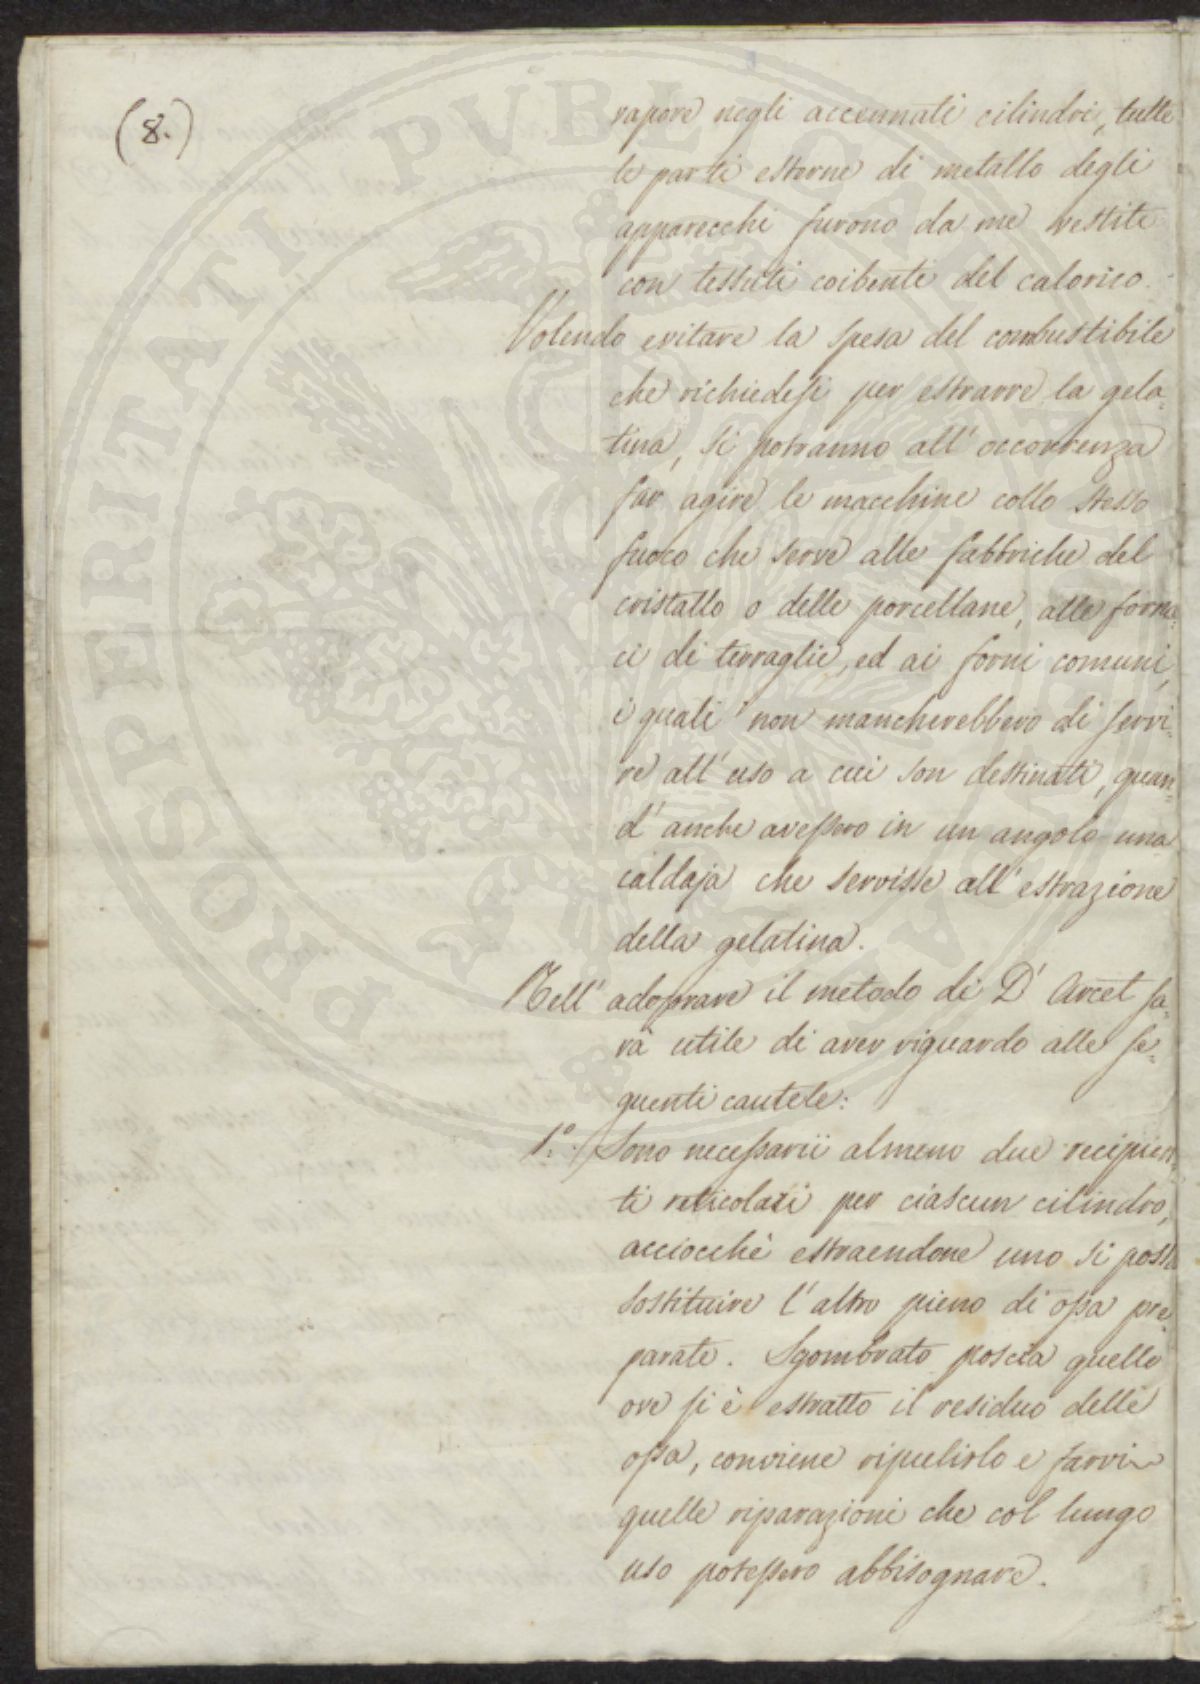 (8.)
vapore negli accennati cilindri, tutte
le parti esterne di metallo degli
apparecchi furono da me vestite
con tessuti coibenti del calorico.
Volendo evitare la spesa del combustibile
che richiedesi per estrarre la gela=
tina, si potranno all'occorrenza
far agire le macchine collo stesso
fuoco che serve alle fabbriche del
cristallo o delle porcellane, alle forna=
ci di terraglie, ed ai forni comuni,
i quali non mancherebbero di servi=
re all'uso a cui son destinati, quan=
d'anche avessero in un angolo una
caldaja che servisse all'estrazione
della gelatina.
Nell'adoprare il metodo di D'Arcet sa=
rà utile di aver riguardo alle se=
guenti cautele:
1.° Sono necessarii almeno due recipien=
ti reticolari per ciascun cilindro,
acciocchè estraendone uno si possa
sostituire l'altro pieno di ossa pre=
parate. Sgombrato poscia quello
ove si è estratto il residuo delle
ossa, conviene ripulirlo e farvi
quelle riparazioni che col lungo
uso potessero abbisognare.
PROSPERITATI PVBLICAE AVGENDAE